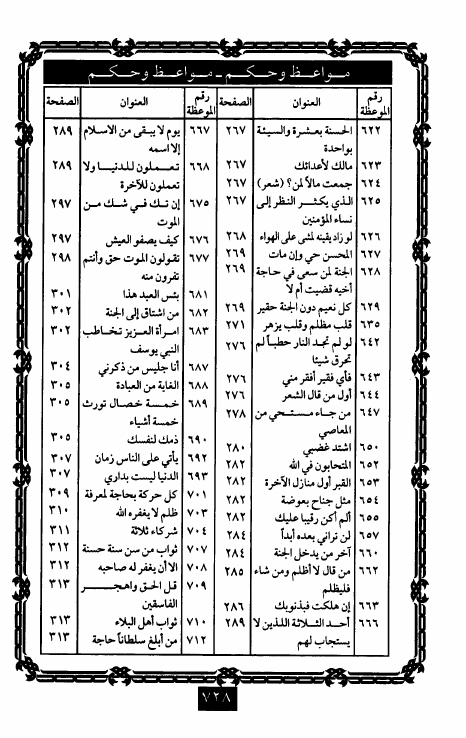 مواعظ وحكم - مواعظ وحكم
رقم الموعظة العنوان الصفحة
٦٢٢ الحسنة بعشرة والسيئة ٢٦٧
بواحدة
٦٢٣ مالك لأعدائك ٢٦٧
٦٢٤ جمعت مالاً لمن؟ (شعر) ٢٦٧
٦٢٥ الذي يكثر النظر إلى ٢٦٧
نساء المؤمنين
٦٢٦ لو زاد يقينه لمشى على الهواء ٢٦٨
٦٢٧ المحسن حي وإن مات ٢٦٩
٦٢٨ الجنة لمن سعى في حاجة ٢٦٩
أخيه قضيت أم لا
٦٢٩ كل نعيم دون الجنة حقير ٢٦٩
٦٣٥ قلب مظلم وقلب يزهر ٢٧١
٦٤٢ لو لم تجد النار حطباً لم ٢٧٦
تحرق شيئا
٦٤٣ فأي فقير أفقر مني ٢٧٦
٦٤٤ أول من قال الشعر ٢٧٦
٦٤٧ من جاء مستحي من ٢٧٨
المعاصي
٦٥٠ اشتد غضبي ٢٨٠
٦٥٢ المتحابون في الله ٢٨٢
٦٥٣ القبر أول منازل الآخرة ٢٨٢
٦٥٤ مثل جناح بعوضة ٢٨٢
٦٥٥ ألم أكن رقيبا عليك ٢٨٢
٦٥٧ لن تراني بعده أبداً ٢٨٤
٦٦٠ آخر من يدخل الجنة ٢٨٤
٦٦٢ من قال لا أظلم ومن شاء ٢٨٥
فليظلم
٦٦٣ إن هلكت فبذنوبك ٢٨٦
٦٦٦ أحد الثلاثة اللذين لا ٢٨٩
يستجاب لهم
رقم الموعظة العنوان الصفحة
٦٦٧ يوم لا يبقى من الاسلام ٢٨٩
إلا اسمه
٦٦٨ تعملون للدنيا ولا ٢٨٩
تعملون للآخرة
٦٧٥ إن تك في شك من ٢٩٧
الموت
٦٧٦ كيف يصفو العيش ٢٩٧
٦٧٧ تقولون الموت حق وأنتم ٢٩٨
تفرون منه
٦٨١ بئس العبد هذا ٣٠١
٦٨٢ من اشتاق إلى الجنة ٣٠٢
٦٨٣ امرأة العزيز تخاطب ٣٠٢
النبي يوسف
٦٨٧ أنا جليس من ذكرني ٣٠٤
٦٨٨ الغاية من العبادة ٣٠٥
٦٨٩ خمسة خصال تورث ٣٠٥
خمسة أشياء
٦٩٠ ذمك لنفسك ٣٠٥
٦٩٢ يأتي على الناس زمان ٣٠٧
٦٩٣ الدنيا ليست بداري ٣٠٧
٧٠١ كل حركة بحاجة لمعرفة ٣٠٩
٧٠٣ ظلم لا يغفره الله ٣١٠
٧٠٤ شركاء ثلاثة ٣١١
٧٠٧ ثواب من سن سنة حسنة ٣١٢
٧٠٨ الا أن يغفر له صاحبه ٣١٢
٧٠٩ قل الحق واهجر ٣١٣
الفاسقين
٧١٠ ثواب أهل البلاء ٣١٣
٧١٢ من أبلغ سلطاناً حاجة ٣١٣
٧٢٨